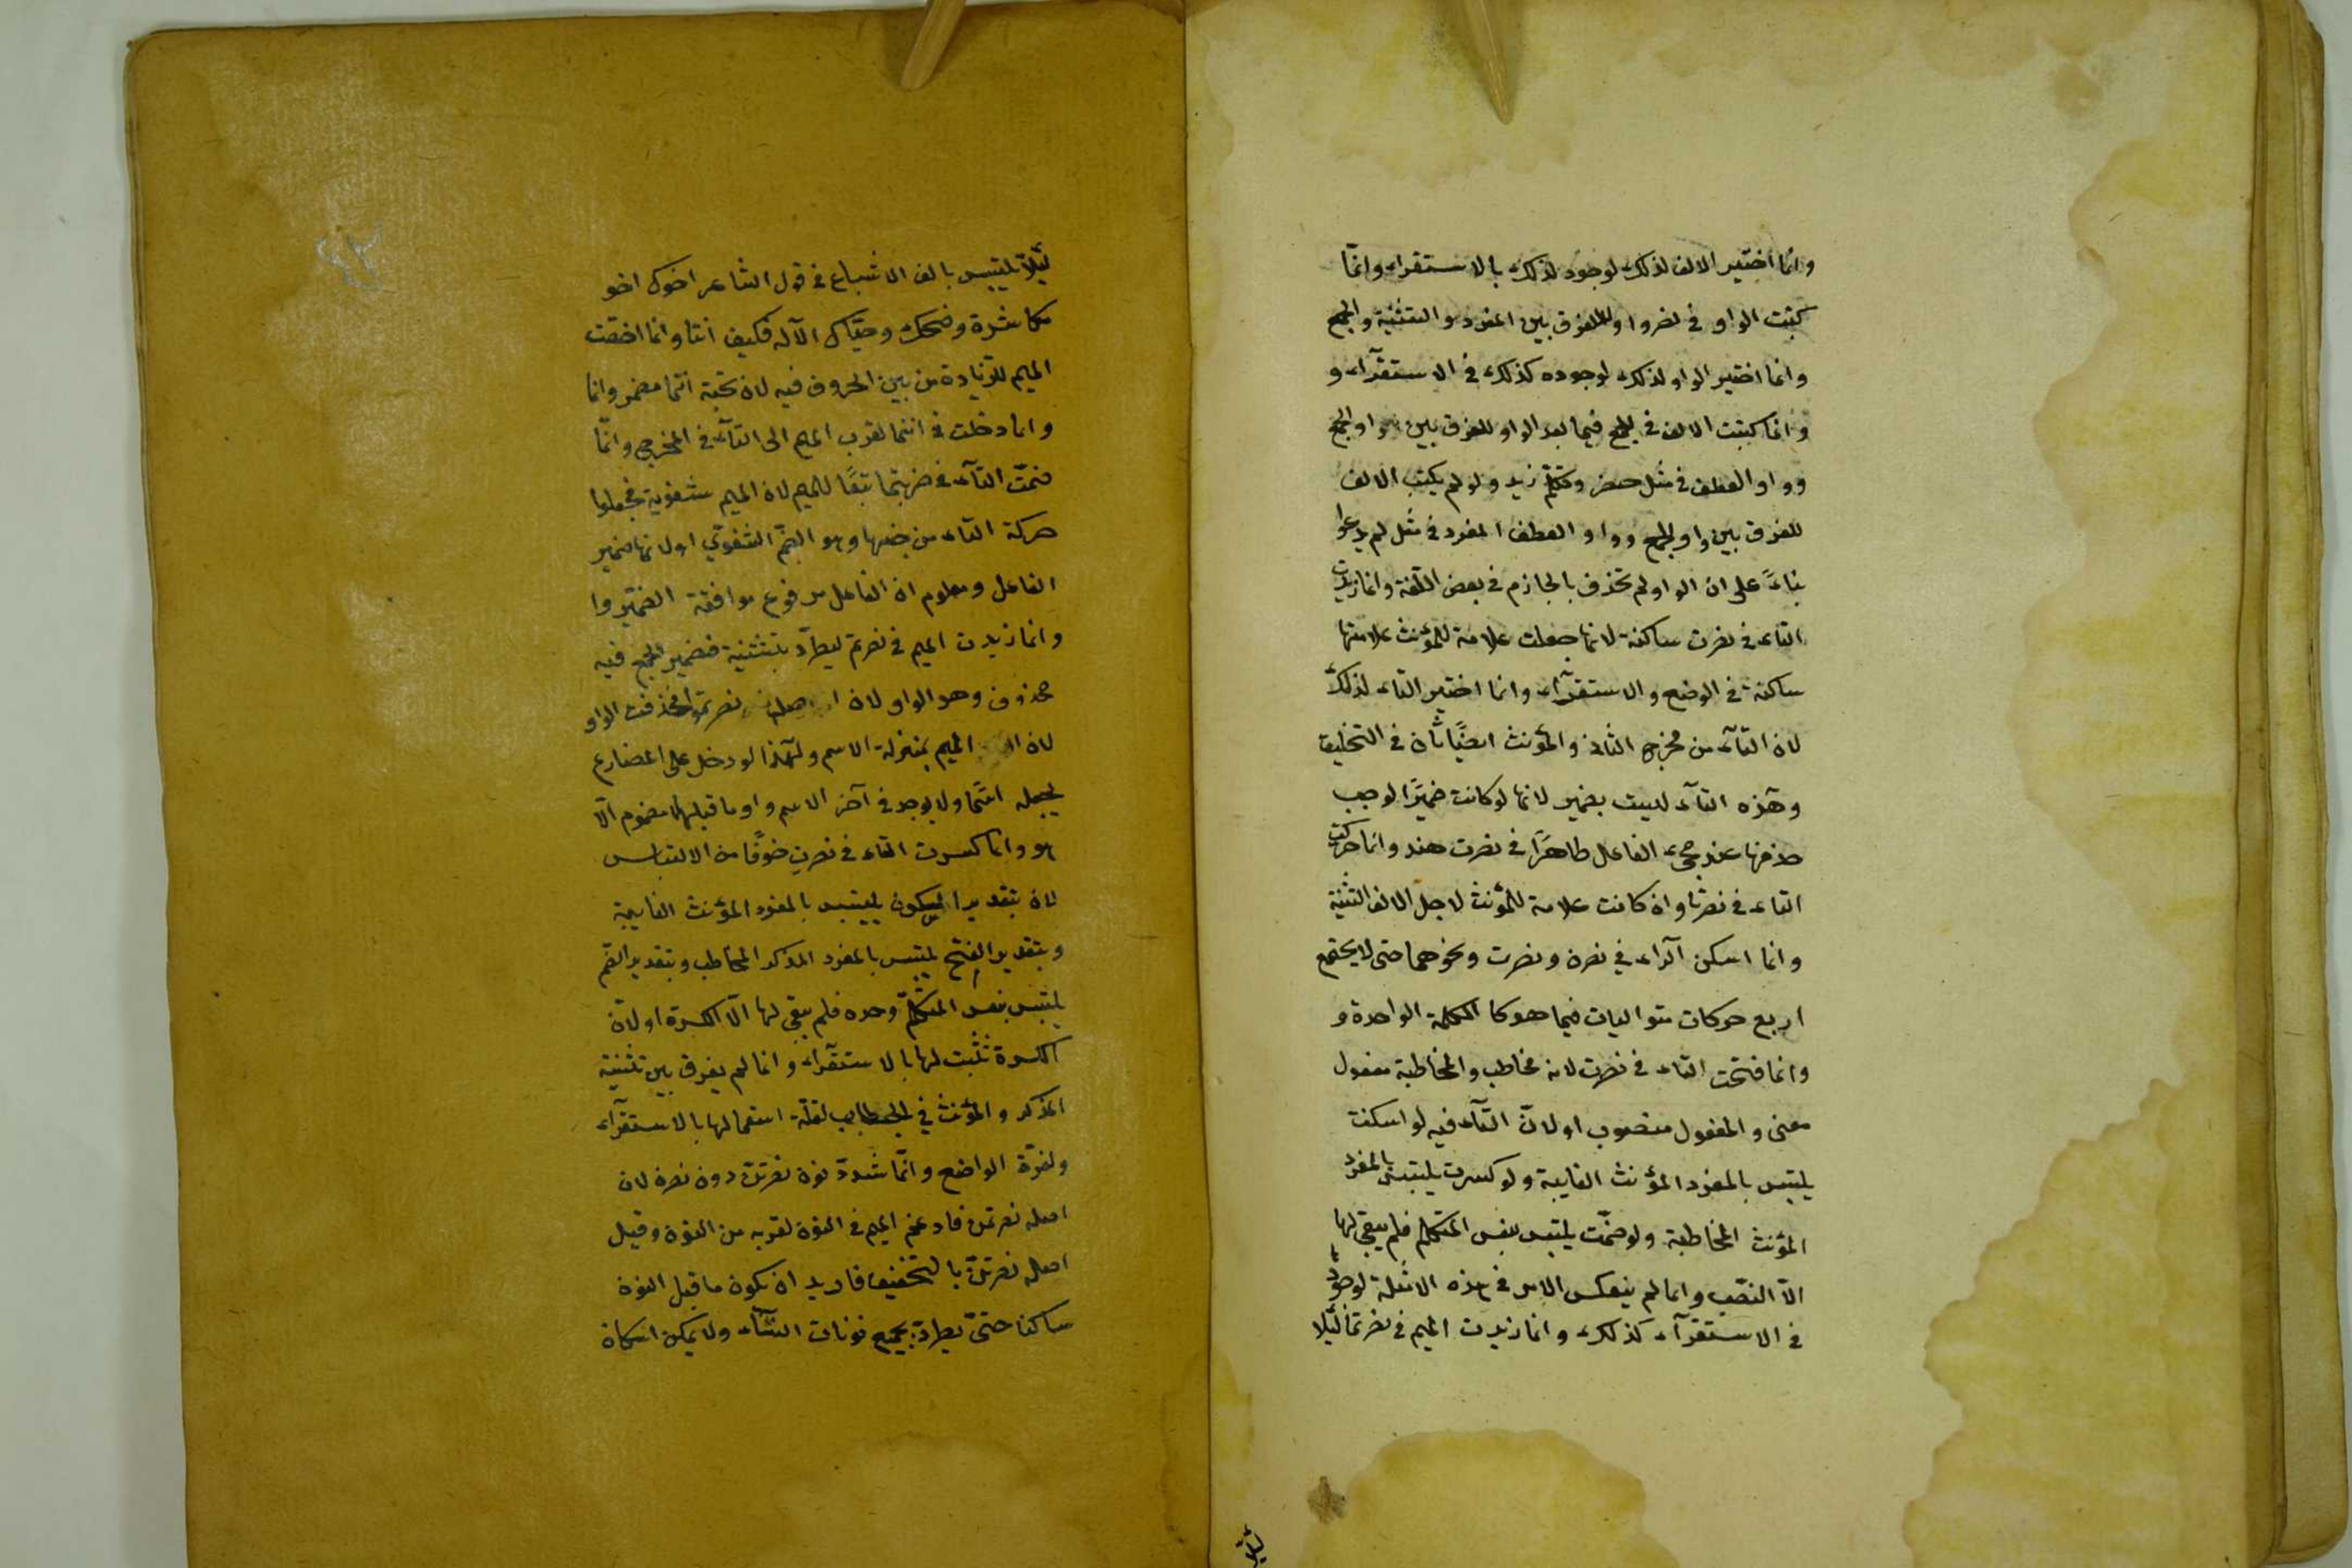 وانما اختير الالف لذلك لوجود لذلك بالاستقراء وانّما
كتبت الواو في نصروا وللفرق بين المفرد والتثنية والجمع
وانما اختير الواو لذلك لوجوده كذلك في الاستقرآء و
وانما كتبت الالف في الجمع فيما بعد الواو للفرق بين واو الجمع
وواو العطف في مثل حضر وتكلّم زيد ولو لم يكتب الالف
للفرق بين واو الجمع وواو العطف المفرد في مثل لم يدعوا
بناءً على ان الواو لم تحذف بالجازم في بعض اللّغة وانما زيدت
التاء في نصرت ساكنة لانها جعلت علامة للمؤنث علامتها
ساكنة في الوضع والاستقرآء وانما اختير التاء لذلك
لان التآء من مخرج الثاني والمؤنث ايضًا ثان في التخليق
وهذه التآء ليست بضمير لانها لو كانت ضميرًا لوجب
حذفها عند مجيء الفاعل ظاهرًا في نصرت هند وانما حركت
التاء في نصرتا وان كانت علامة للمؤنث لاجل الالف التثنية
وانما اسكن الرّاء في نصرن ونصرت ونحوهما حتى لا يجتمع
اربع حركات متواليات فيما هو كا الكلمة الواحدة و
وانما فتحت التاء في نصرت لانه مخاطب والمخاطبة مفعول
معنى والمفعول منصوب او لانّ التآء فيه لو اسكنت
يلتبس بالمفرد المؤنث الغايبة ولو كسرت يلتبس بالمفرد
المؤنث المخاطبة ولو ضمّت يلتبس بنفس المتكلم فلم يبقى لها
الّا النصب وانما لم ينعكس الامر في هذه الامثلة لوجود
في الاستقرآء كذلك وانما زيدت الميم في نصرتما لئلا
لئلا
لئلّا يلتبس بالف الاشباع في قول الشاعر اخوك اخو
مكاشرة وضحك وحيّاك الآله فكيف انتا وانما اختصّت
الميم للزّيادة من بين الحروف فيه لان تحته انتما مضمر وانما
وانما دخلت في انتما لقرب الميم الى التآء في المخرج وانّما
ضمّت التآء في ضربتما تبعًا للميم لان الميم شفوية فجعلوا
حركة التاء من جنسها وهو الضمّ الشفويّ او لانها ضمير
الفاعل ومعلوم ان الفاعل مرفوع موافقة
وانما زيدت الميم في نصرتم ليطرّد بتثنية فضمير الجمع فيه
محذوف وهو الواو لان اصله نصرتموا فحذفت الواو
لان الميم بمنزلة الاسم ولهذا لو دخل على المضارع
يجعله اسمًا ولا يوجد في آخر الاسم واو ما قبلها مضموم الّا
هو وانما كسرت التاء في نصرت خوفًا من الالتباس
لان بتقدير السكون يلتبس بالمفرد المؤنث الغايبة
وبتقدير الفتح يلتبس بالمفرد المذكر المخاطب وبتقدير الضّم
يلتبس بنفس المتكلّم وحده فلم يبقى لها الّا الكسرة او لانّ
الكسرة تثبت لها بالاستقرآء وانما لم يفرق بين تثنية
المذكر والمؤنث في الخطاب لقلّة استعمالها بالاستقرآء
الواضع وانّما شدّد نون نصرتنّ دون نصرن لان
اصله نصرتمن فادغم الميم في النون لقربه من النون وقيل
اصله نصرتنّ بالتخفيف فاريد ان يكون ما قبل النون
ساكنا حتّى يطرّد بجميع نونات النّسآء ولا يمكن اسكان